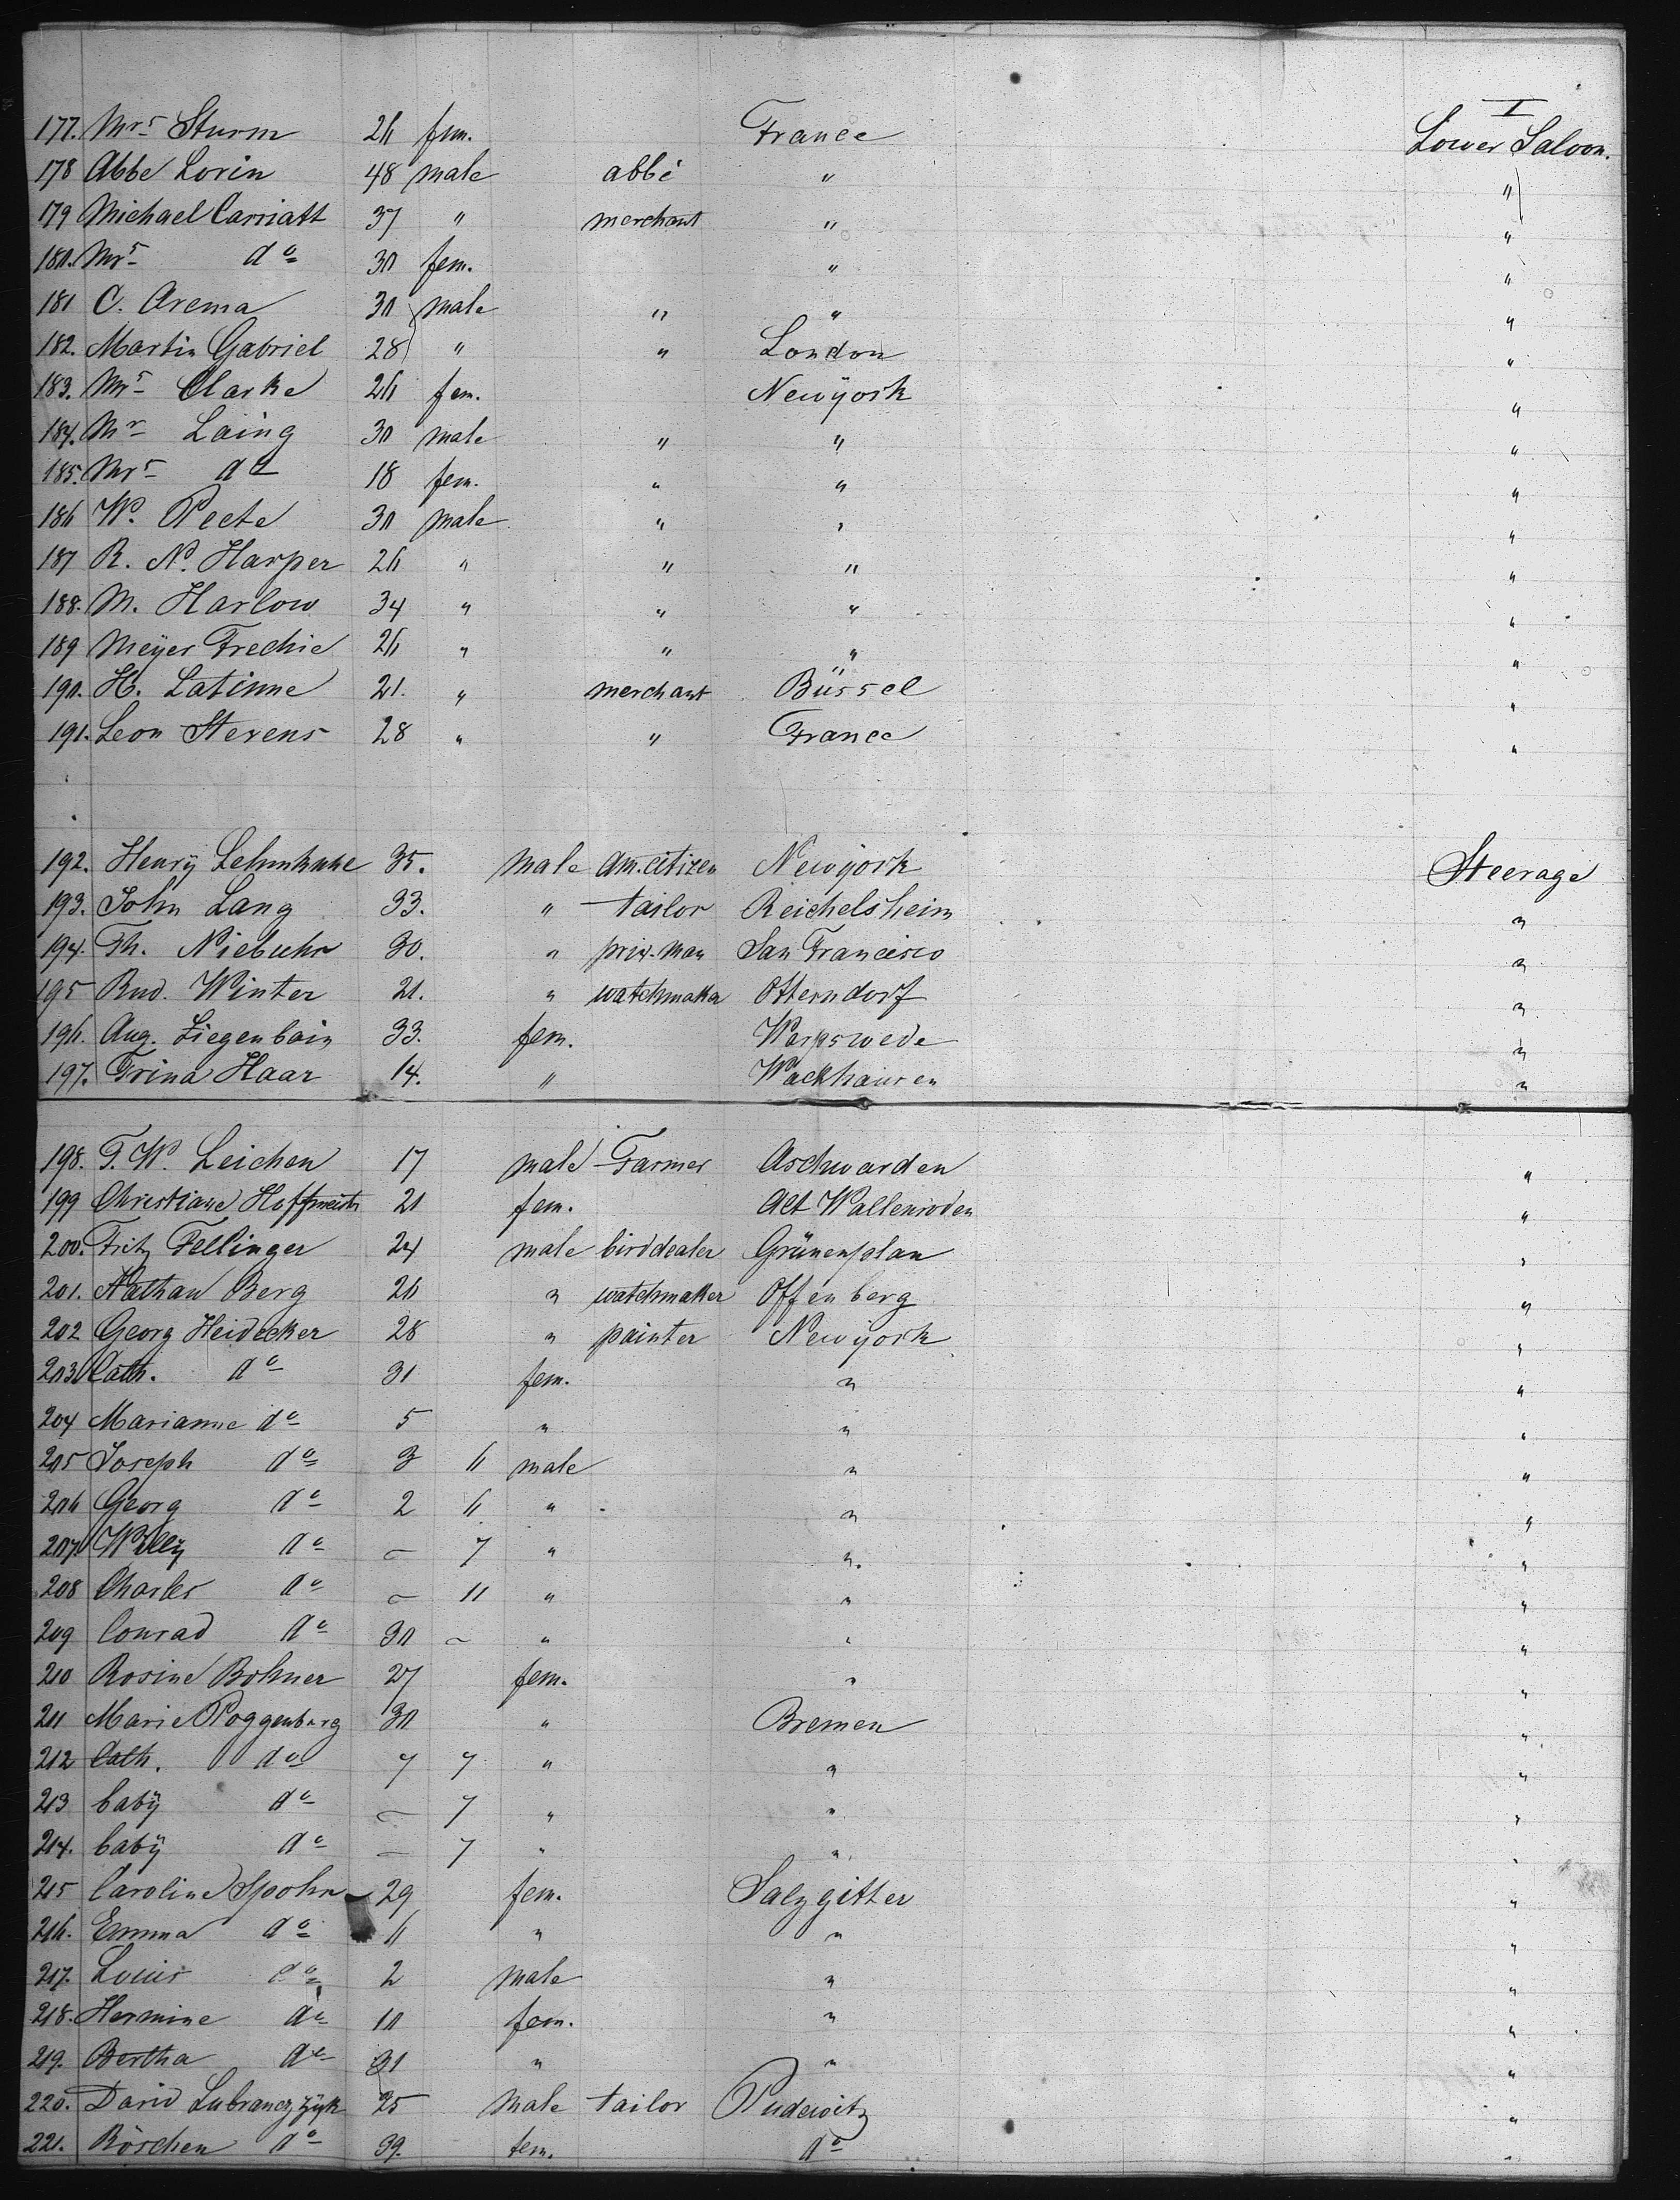 I
177. Mrs Sturm 26 fem. France Lower Saloon.
178 Abbe Lorin 48 male abbé " "
179 Michael Carriatt 37 " merchant " "
180. Mrs do 30 fem. " "
181 C. Arema 30 male " " "
182. Martin Gabriel 28 " " London "
183. Mrs Clarke 26 fem. Newyork "
184. Mr Laing 30 male " " "
185. Mrs do 18 fem. " " "
186 W. Peete 30 male " " "
187 R. N. Harper 26 " " " "
188. M. Harlow 34 " " " "
189 Meyer Frechie 26 " " " "
190. H. Latinne 21. " merchant Büssel "
191. Leon Stevens 28 " " France "
192. Henry Lehmkuhl 35. male am. citizen Newyork Steerage
193. John Lang 33. " tailor Reichelsheim "
194. Th. Niebuhr 30. " priv. man San Francisco "
195 Rud. Winter 21. " watchmaker Otterndorf "
196. Aug. Ziegenbain 33. fem. Warpswede "
197. Trina Haar 14. " Wackhausen "
198. T. W. Leichen 17 male Farmer Aschwarden "
199 Christiane Hoffmeister 21 fem. Alt Wallenroden "
200. Fritz Fellinger 24 male birddealer Grünenplan "
201. Nathan Berg 20 " watchmaker Offenberg "
202 Georg Heidecker 28 " painter Newyork "
203 Cath. do 31 fem. " "
204 Marianne do 5 " " "
205 Joseph do 3 6 male " "
206 Georg do 2 6 " " "
207 Willy do - 7 " " "
208 Charles do - 11 " " "
209 Conrad do 30 - " " "
210 Rosine Bohner 27 fem. " "
211 Marie Poggenburg 30 " Bremen "
212 Cath. do 7 7 " " "
213 baby do - 7 " " "
214. baby do - 7 " " "
215 Caroline Spohr 29 fem. Salzgitter "
216. Emma do 6 " " "
217. Louis do 2 male " "
218. Hermine do 10 fem. " "
219. Bertha do 31 " " "
220. David Lubranczyk 25 male tailor Pudewitz "
221. Röschen do 39. fem. do "